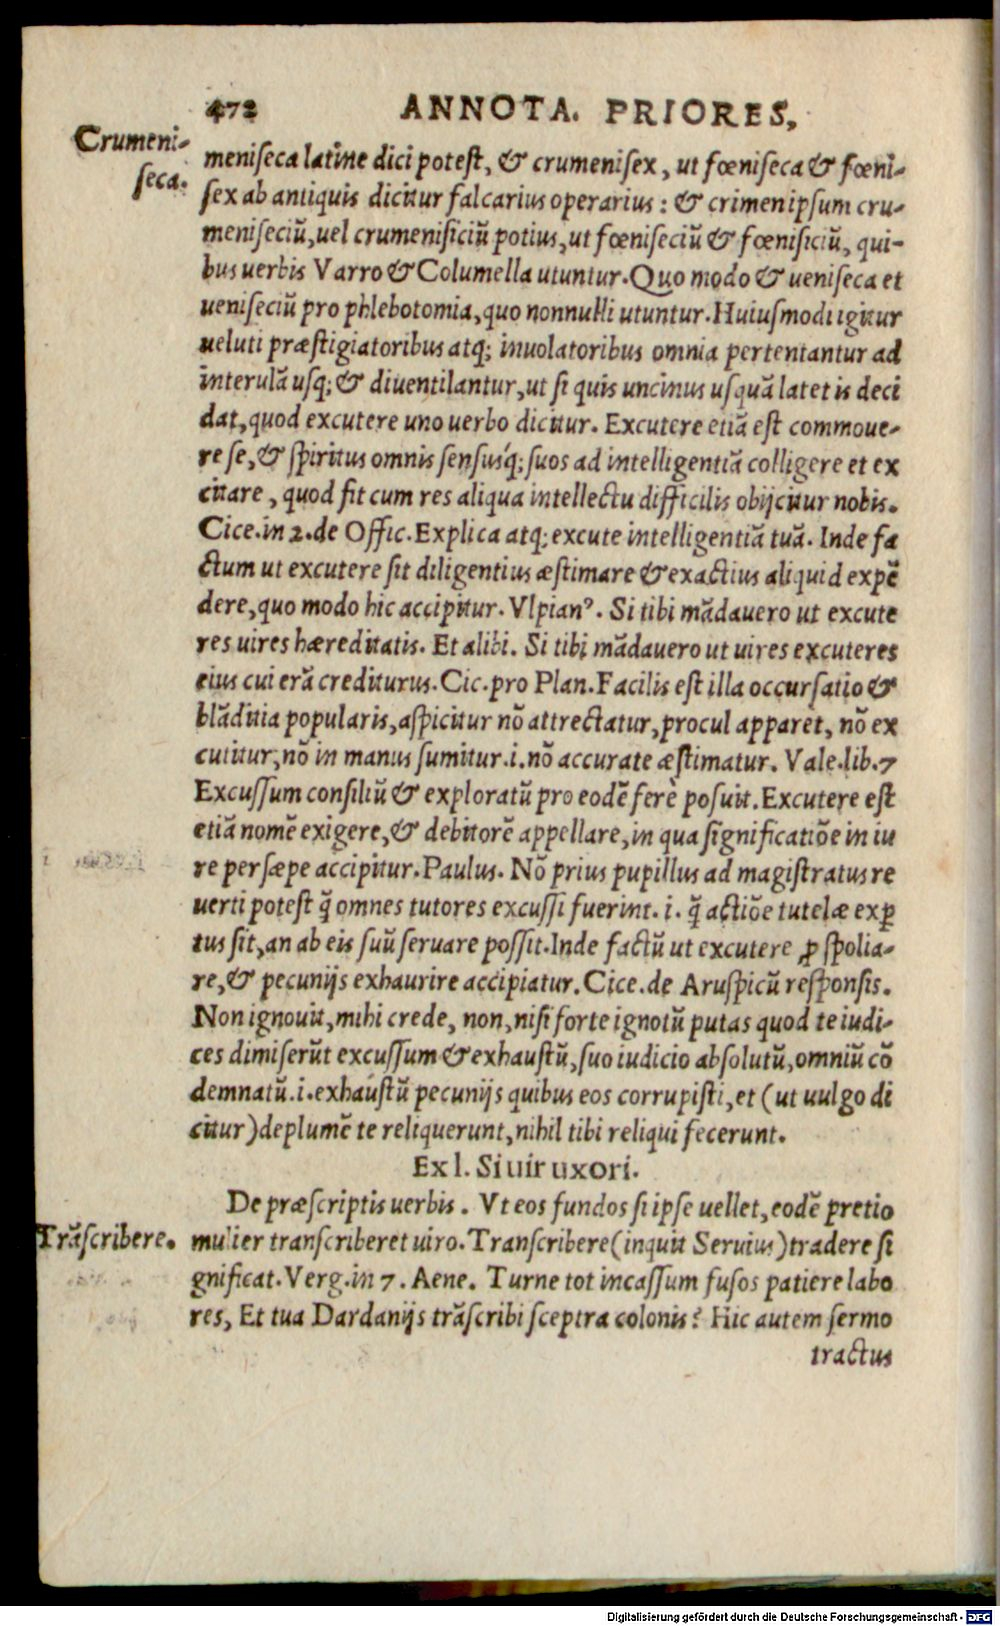 472 ANNOTA. PRIORES,
Crumeni-
seca.
meniseca latine dici potest, & crumenisex, ut fœniseca & fœni-
sex ab antiquis dicitur falcarius operarius: & crimen ipsum cru-
meniseciũ, uel crumenisiciũ potius, ut fœniseciũ & fœnisiciũ, qui-
bus uerbis Varro & Columella utuntur. Quo modo & ueniseca et
ueniseciũ pro phlebotomia, quo nonnulli utuntur. Huiusmodi igitur
ueluti præstigiatoribus atq; inuolatoribus omnia pertentantur ad
interulã usq; & diuentilantur, ut si quis uncinus usquã latet is deci
dat, quod excutere uno uerbo dicitur. Excutere etiã est commoue-
re se, & spiritus omnis sensusq́; suos ad intelligentiã colligere et ex
citare, quod fit cum res aliqua intellectu difficilis obijcitur nobis.
Cice. in 2. de Offic. Explica atq; excute intelligentiã tuã. Inde fa
ctum ut excutere sit diligentius æstimare & exactius aliquid expẽ
dere, quo modo hic accipitur. Vlpianꝰ. Si tibi mãdauero ut excute
res uires hæreditatis. Et alibi. Si tibi mãdauero ut uires excuteres
eius cui erã crediturus. Cic. pro Plan. Facilis est illa occursatio &
blãditia popularis, aspicitur nõ attrectatur, procul apparet, nõ ex
cutitur, nõ in manus sumitur .i. nõ accurate æstimatur. Vale. lib. 7
Excussum consiliũ & exploratũ pro eodẽ ferè posuit. Excutere est
etiã nomẽ exigere, & debitorẽ appellare, in qua significatiõe in iu
re persæpe accipitur. Paulus. Nõ prius pupillus ad magistratus re
uerti potest q̃ omnes tutores excussi fuerint. i. q̃ actiõe tutelæ exꝑ
tus sit, an ab eis suũ seruare possit. Inde factũ ut excutere ꝓ spolia-
re, & pecunijs exhaurire accipiatur. Cice. de Aruspicũ responsis.
Non ignouit, mihi crede, non, nisi forte ignotũ putas quod te iudi-
ces dimiserũt excussum & exhaustũ, suo iudicio absolutũ, omniũ cõ
demnatũ .i. exhaustũ pecunijs quibus eos corrupisti, et (ut uulgo di
citur) deplumẽ te reliquerunt, nihil tibi reliqui fecerunt.
Ex l. Si uir uxori.
De præscriptis uerbis. Vt eos fundos si ipse uellet, eodẽ pretio
Trãscribere.
mulier transcriberet uiro. Transcribere (inquit Seruius) tradere si
gnificat. Verg. in 7. Aene. Turne tot incassum fusos patiere labo
res, Et tua Dardanijs trãscribi sceptra colonis? Hic autem sermo
tractus
Digitalisierung gefördert durch die Deutsche Forschungsgemeinschaft - DFG